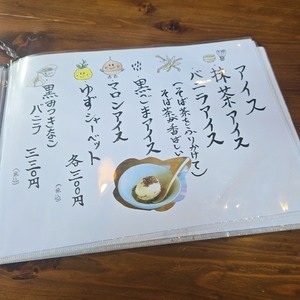 アイス
抹茶アイス
バニラアイス
(そば茶をふりかけて
そば茶が香ばしい)
黒ごまアイス
マロンアイス
ゆずシャーベット
各三〇〇円
黒みつきなこ
バニラ
三三〇円